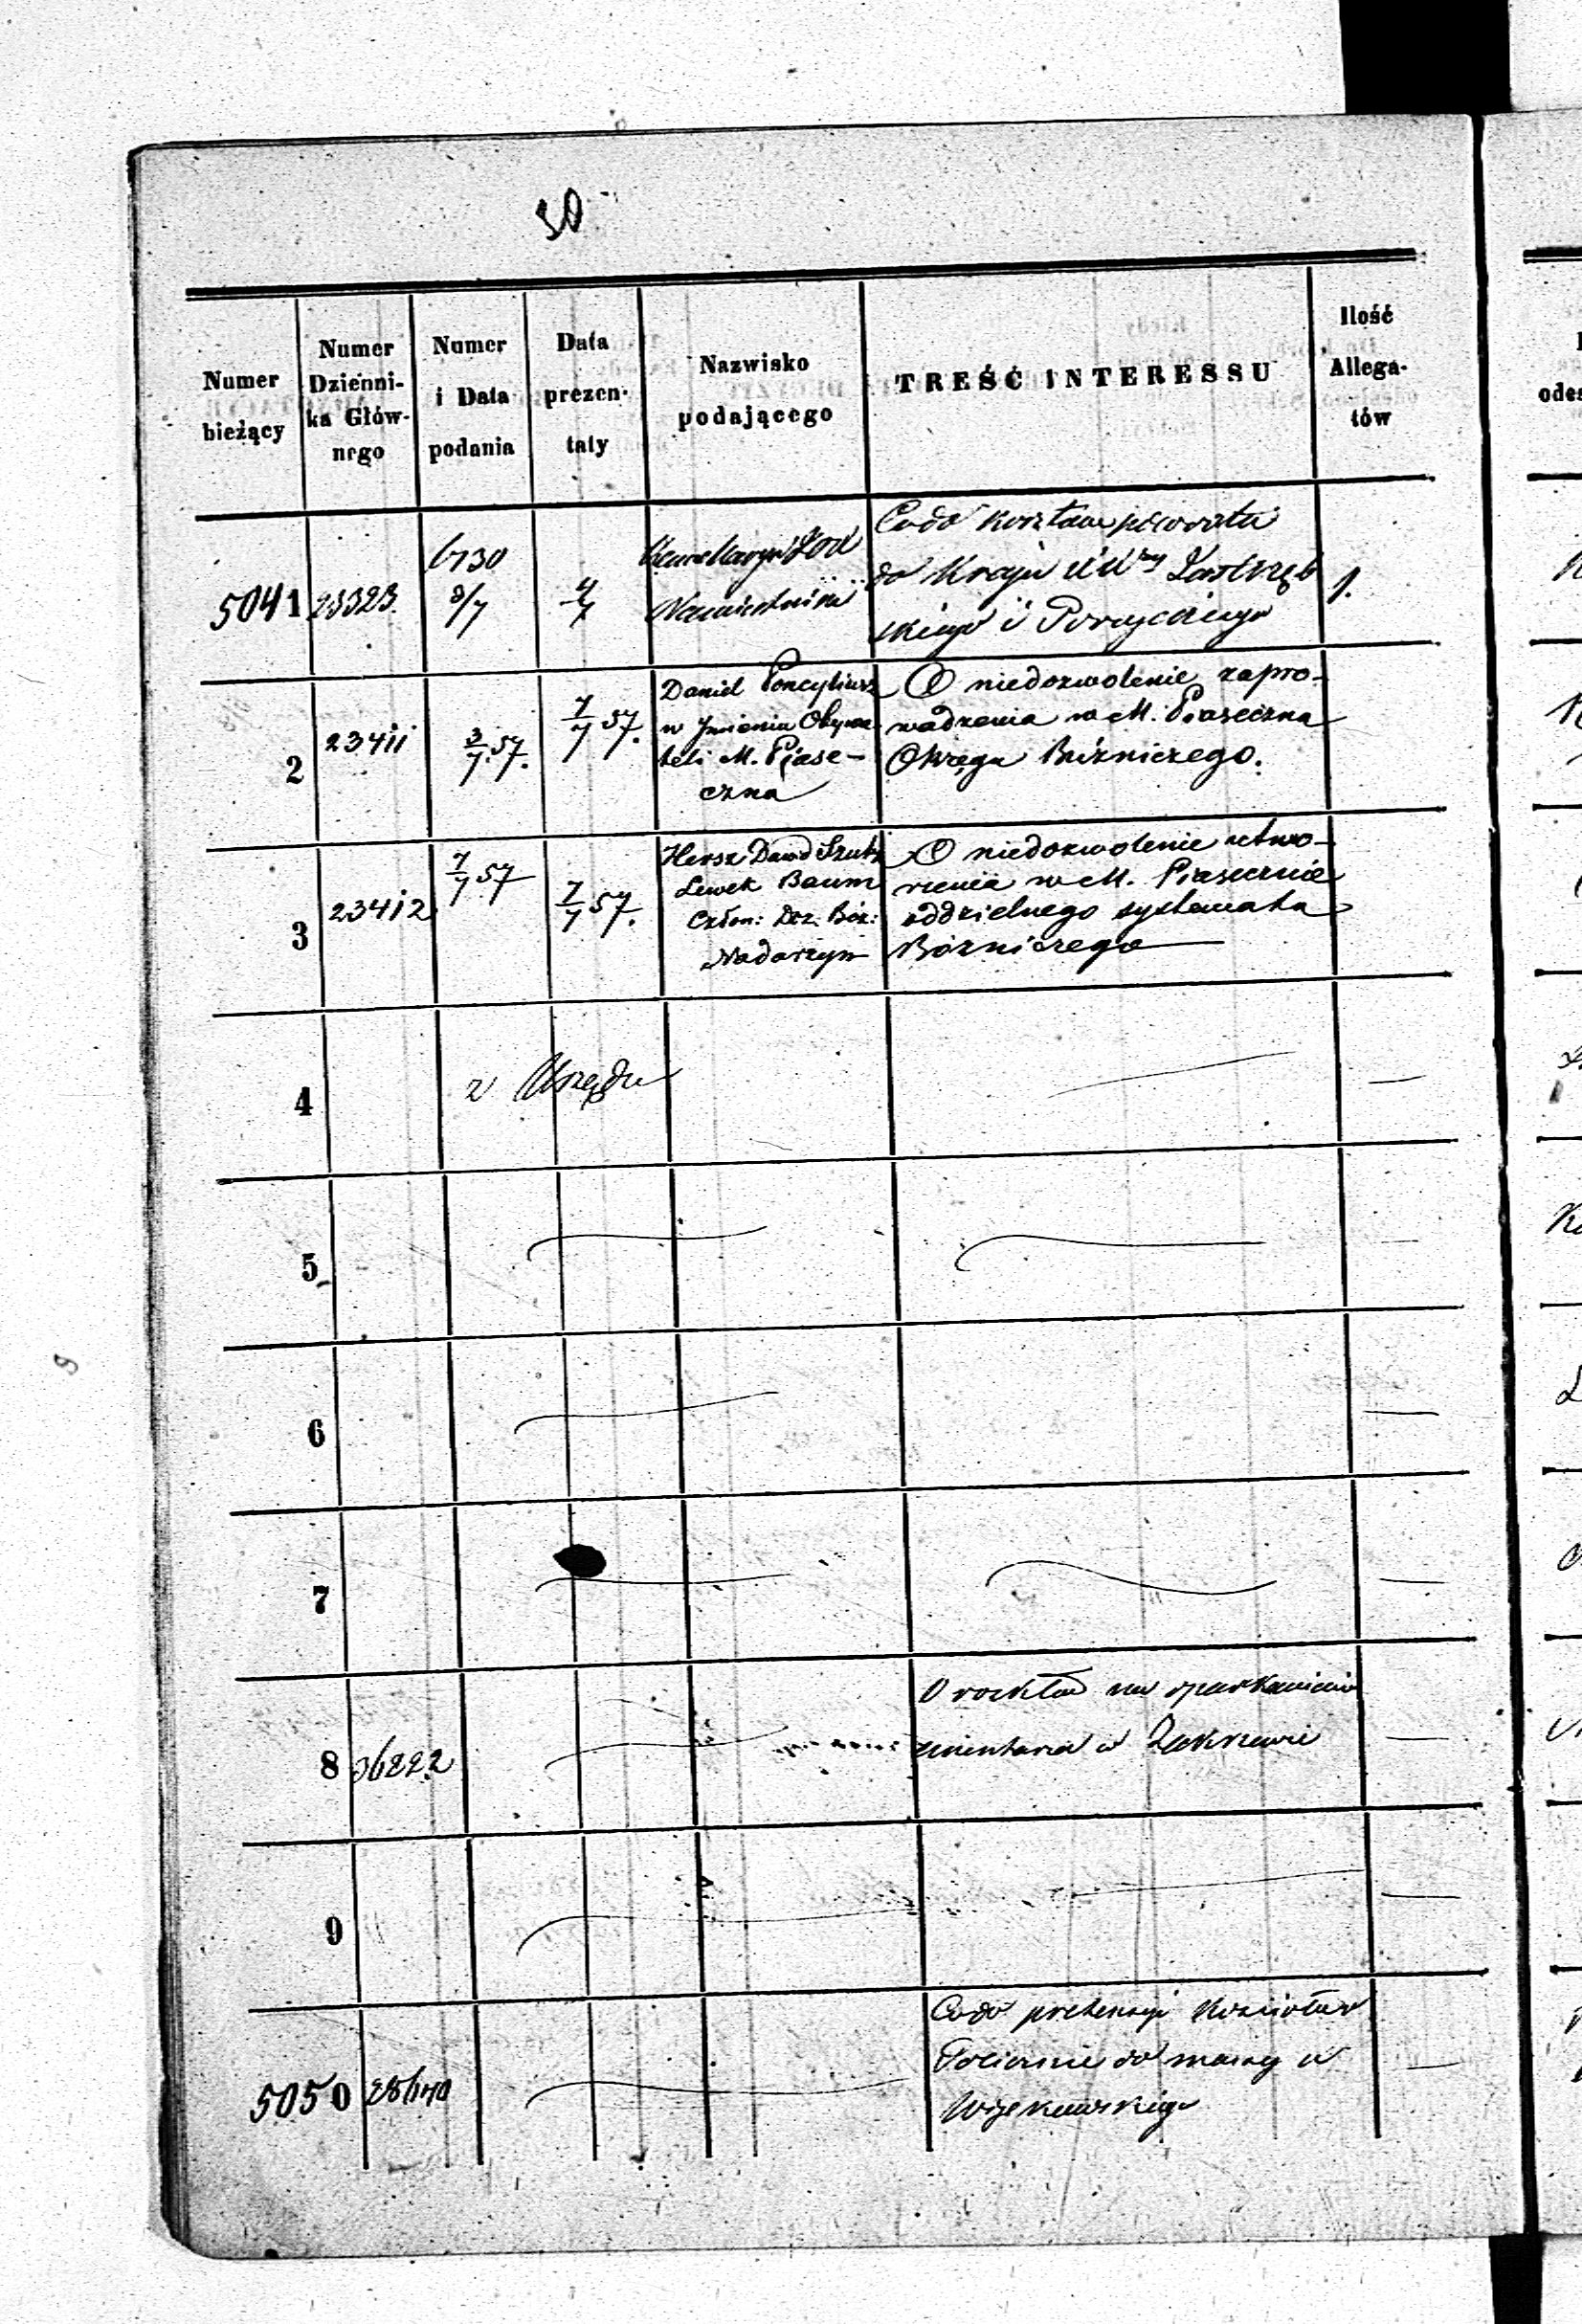 30
Numer bieżący
Numer Dzienni-ka Głów-nego
Numer i Data podania
Data prezen-taty
Nazwisko podającego
TREŚĆ INTERESSU
Ilość Allega-tów
5041
23323.
6730
8/7
4/7
Namiestnika
Codo kosztów powrotu
do Kraju
skiego i
1.
2
23411
3/7 57.
7/7 57.
Daniel Poncyliusz
w Jmieniu Obywa-
teli M. Piase-
czna
O niedozwolenie zapro-
wadzenia w M. Piaseczna
Okręgu Bóżniczego.
3
23412
7/7 57
7/7 57.
Hersz Dawid Szutz
Lewek Baum
Człon: Doz. Bóż:
Nadarzyn
O niedozwolenie utwo-
rzenia w M. Piasecznie
oddzielnego systemata
Bóżniczego
4
z Urzędu
5
6
7
8
36222
O rozkład na oparkanienie
cmentarza w Zakrzewie
9
5050
Codo pretensyi Kościoła
do massy